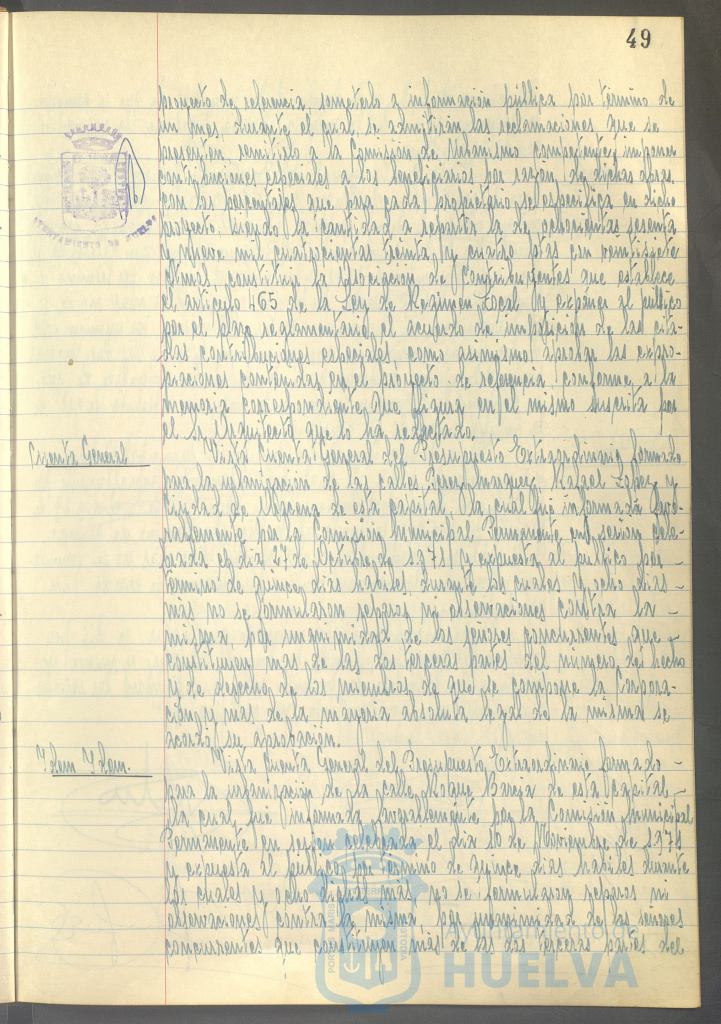 49
proyecto de referencia, someterlo a información pública por término de
un mes, durante el cual se admitirán las reclamaciones que se
presenten remitirlo a la Comisión de Urbanismo competente, imponer
contribuciones especiales a los beneficiarios por razón de dichas obras
con los porcentajes que para cada propietario se especifica en dicho
proyecto siendo la cantidad a repartir la de ochocientas sesenta
y nueve mil cuatrocientas treinta y cuatro ptas con veintisiete
ctmos, constituir la Asociación de Contribuyentes que establece
el artículo 465 de la Ley de Régimen Local y exponer al público
por el plazo reglamentario el acuerdo de imposición de las cita-
das contribuciones especiales, como asimismo aprobar las expro-
piaciones contenidas en el proyecto de referencia conforme a la
memoria correspondiente que figura en el mismo suscrita por
el Sr Arquitecto que lo ha redactado.
Cuenta General
Vista Cuenta General del Presupuesto Extraordinario formado
para la urbanización de las calles Perez Marquez, Rafael Lopez y
Ciudad de Aracena de esta capital, la cual fué informada favo-
rablemente por la Comisión Municipal Permanente en sesión cele-
brada el día 27 de Octubre de 1.971 y expuesta al público por
término de quince días hábiles durante los cuales y ocho días -
más no se formularon reparos ni observaciones contra la -
misma, por unanimidad de los señores concurrentes que -
constituyen mas de las dos terceras partes del número de hecho
y de derecho de los miembros de que se compone la Corpora-
ción y mas de la mayoría absoluta legal de la misma se
acordó su aprobación.
Idem Idem.
Vista Cuenta General del Presupuesto Extraordinario formado -
para la urbanización de la calle Roque Barcia de esta capital -
la cual fué informada favorablemente por la Comisión Municipal
Permanente en sesión celebrada el día 10 de Noviembre de 1.971
y expuesta al público por término de quince días hábiles durante
los cuales y ocho días más no se formularon reparos ni
observaciones contra la misma, por unanimidad de los señores
concurrentes que constituyen más de las dos terceras partes del
AYUNTAMIENTO DE HUELVA
Ayuntamiento de
HUELVA